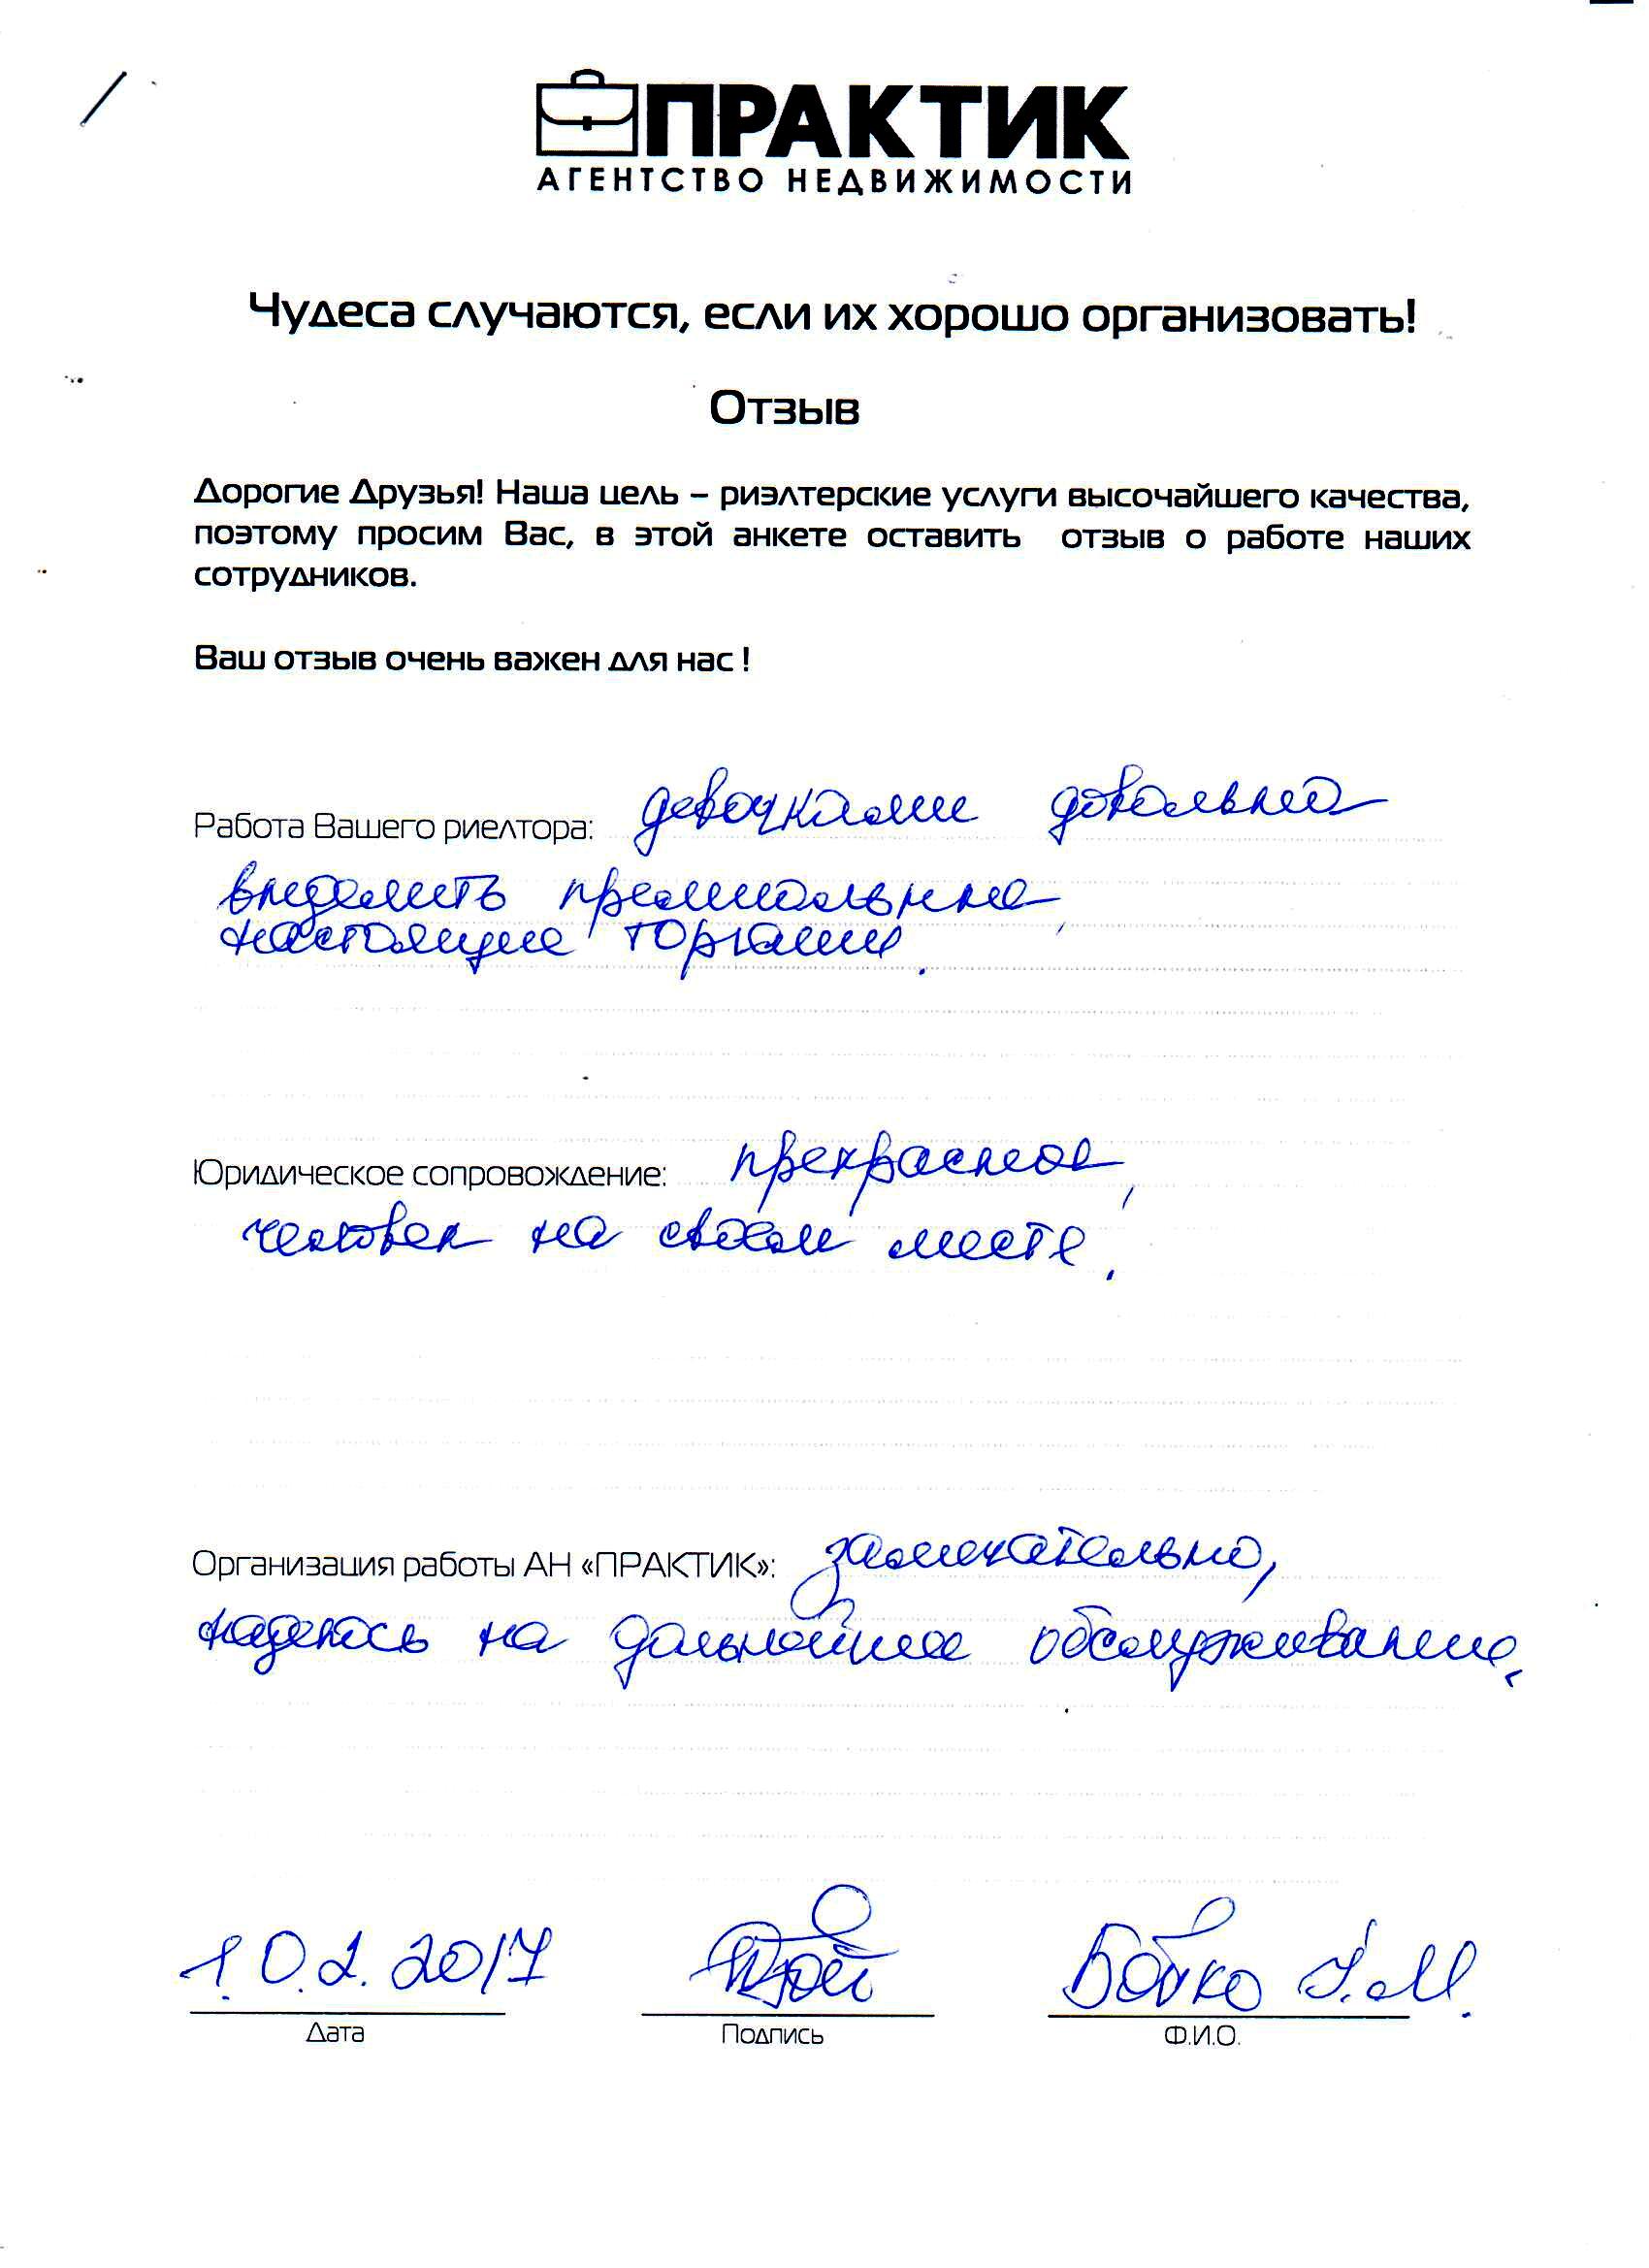 ПРАКТИК
АГЕНТСТВО НЕДВИЖИМОСТИ
Чудеса случаются, если их хорошо организовать!
Отзыв
Дорогие Друзья! Наша цель – риэлтерские услуги высочайшего качества,
поэтому просим Вас, в этой анкете оставить отзыв о работе наших
сотрудников.
Ваш отзыв очень важен для нас !
Работа Вашего риелтора: девочками довольна
выделить премиальные
настоящие торгаши.
Юридическое сопровождение: прекрасное,
человек на своем месте.
Организация работы АН «ПРАКТИК»: замечательно,
надеюсь на дальнейшее обслуживание.
1.02.2017 Бойко М.
Дата Подпись Ф.И.О.